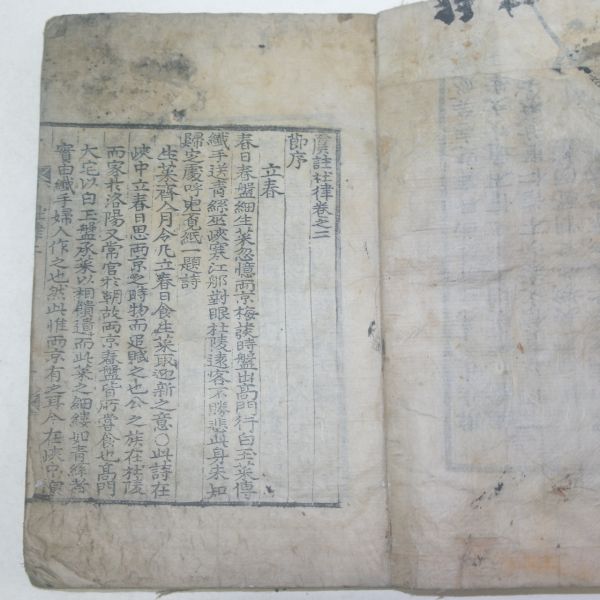 虞註杜律卷之二
節序
立春
春日春盤細生菜忽憶兩京梅發時盤出高門行白玉菜傳
纖手送青絲巫峽寒江那對眼杜陵遠客不勝悲此身未知
歸定處呼兒覓紙一題詩
生菜齊人月令凡立春日食生菜取迎新之意○此詩在
峽中立春日思兩京之時物而追賦之也公之族在杜陵
而家於洛陽又常官於朝故兩京春盤皆所嘗食也高門
大宅以白玉盤承菜以相饋遺而此菜之細縷如青絲者
實由纖手婦人作之也然此惟兩京有之耳今在峽中寅